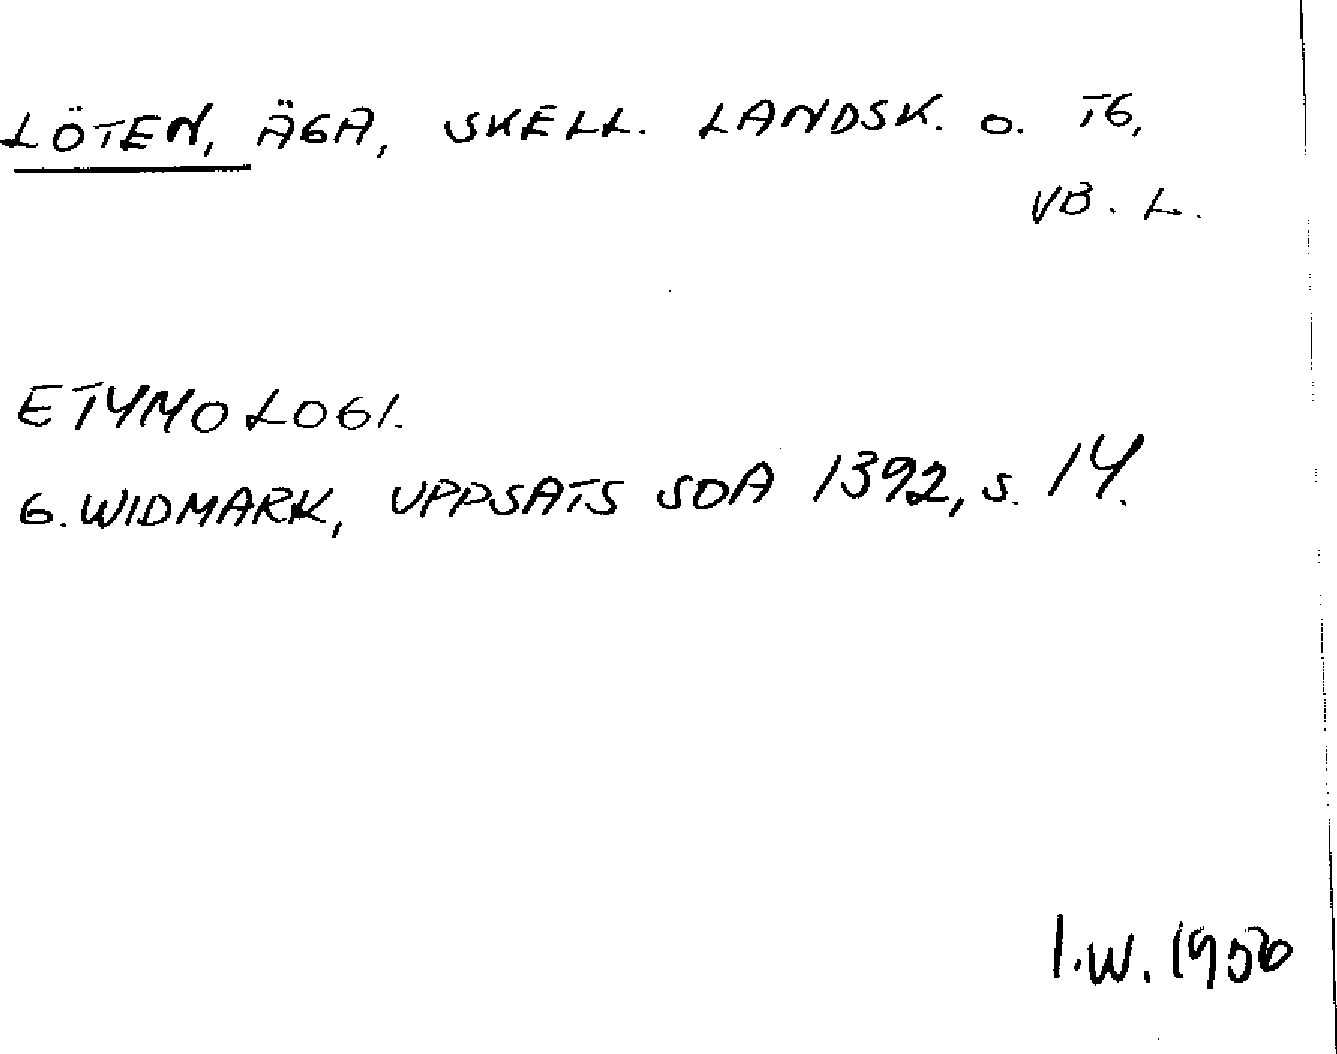 LÖTEN, ÄGA, SKELL. LANDSK. O. TG,
VB. L.
ETYMOLOGI.
G. WIDMARK, UPPSATS SOA 1392, S. 14.
I.W. 1956